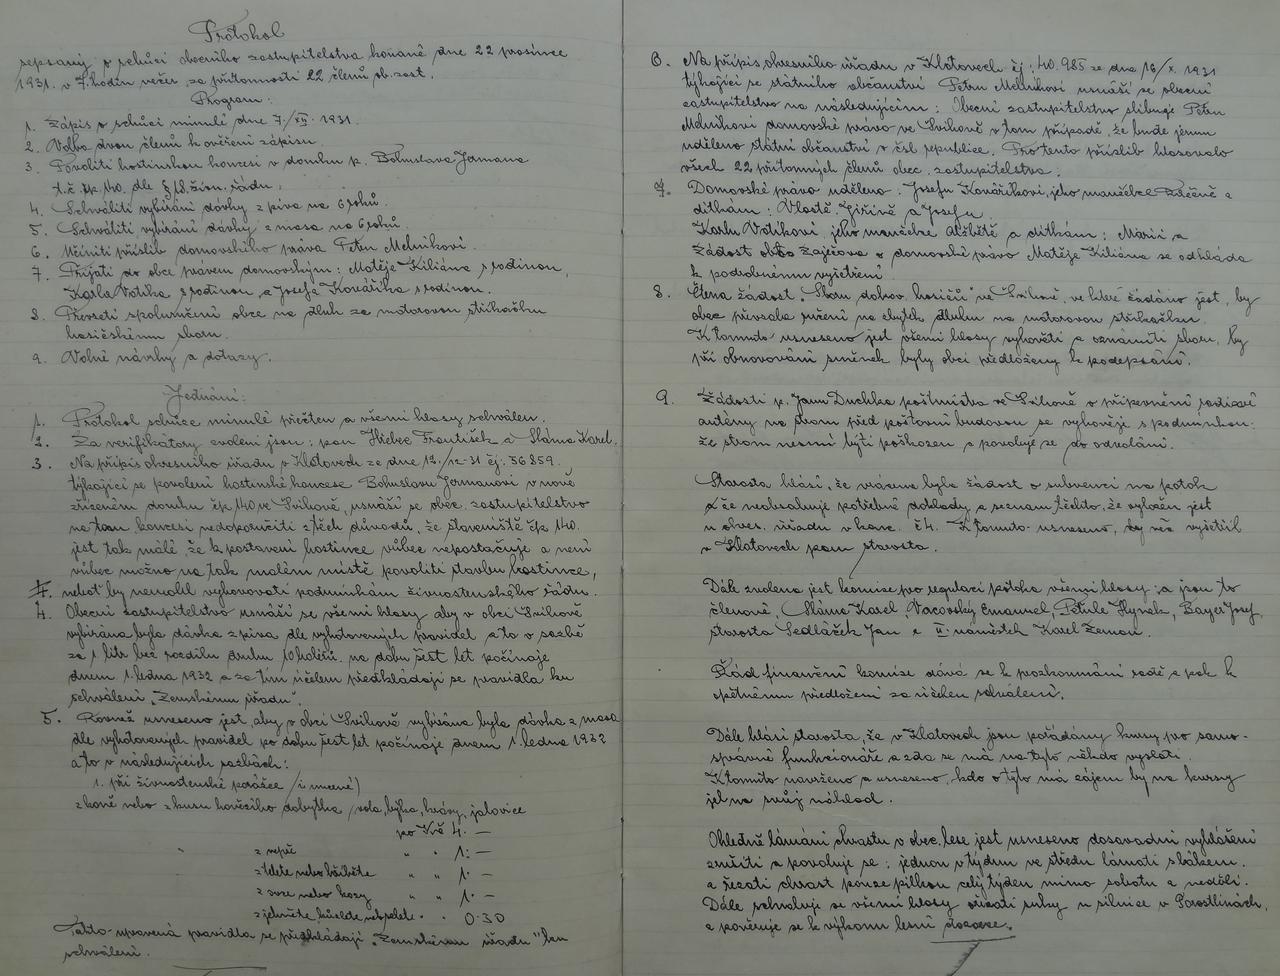 Protokol
sepsaný o schůzi obecního zastupitelstva konané dne 22 prosince
1931. v 7. hodin večer, za přítomnosti 22 členů ob. zast.
Program:
1. Zápis o schůzi minulé dne 7/XII. 1931.
2. Volba dvou členů k ověření zápisu.
3. Povoliti hostinskou koncesi v domku p. Bohuslava Jermana
t.č. čp. 140. dle § 18. živn. řádu.
4. Schváliti vybírání dávky z piva na 6 roků.
5. Schváliti vybírání dávky z masa na 6 roků.
6. Učiniti příslib domovského práva Petru Melnikovi.
7. Přijati do obce právem domovským: Matěje Kiliána s rodinou,
Karla Votíka s rodinou, a Josefa Kováříka s rodinou.
8. Převzetí spoluručení obce na dluh za motorovou stříkačku
hasičskému sboru.
9. Volné návrhy a dotazy.
Jednání:
1. Protokol schůze minulé přečten a všemi hlasy schválen.
2. Za verifikátory zvoleni jsou: pan Hřebec František a Sláma Karel.
3. Na přípis okresního úřadu v Klatovech ze dne 12./12-31 čj: 56859.
týkající se povolení hostinské koncese Bohuslavu Jermanovi v nově
zřízeném domku čp. 140 ve Švihově, usnáší se obec. zastupitelstvo
na tom koncesi nedoporučiti z těch důvodů, že staveniště čp. 140.
jest tak malé, že k postavení hostince vůbec nepostačuje a není
vůbec možno na tak malém místě povoliti stavbu hostince,
neboť by nemohl vyhovovati podmínkám živnostenského řádu.
4. Obecní zastupitelstvo usnáší se všemi hlasy aby v obci Švihově
vybírána byla dávka z piva dle vyhotovených pravidel a to v sazbě
za 1 litr bez rozdílu druhu na dobu šest let počínaje
dnem 1. ledna 1932 a za tím účelem předkládají se pravidla ku
schválení „Zemskému úřadu".
5. Rovněž usneseno jest, aby v obci Švihově vybírána byla dávka z masa
dle vyhotovených pravidel po dobu šest let počínaje dnem 1. ledna 1932
a to v následujících sazbách:
1. při živnostenské porážce /i nucené)
z koně nebo z kusu hovězího dobytka /vola, býka, krávy, jalovice
po Kč 4. —
z vepře „ „ 1: —
z telete nebo hříběte „ „ 1. —
z ovce nebo kozy „ „ 1. —
z jehněte, kůzlete neb selete „ „ 0.30
Takto upravená pravidla se předkládají „Zemskému úřadu" ku
schválení.
6. Na přípis okresního úřadu v Klatovech čj: 40.985 ze dne 16/X. 1931
týkající se státního občanství Petra Melnikovi usnáší se obecní
zastupitelstvo na následujícím: Obecní zastupitelstvo slibuje Petru
Melnikovi domovské právo ve Švihově v tom případě, že bude jemu
uděleno státní občanství v čsl. republice. Pro tento příslib hlasovalo
všech 22 přítomných členů obec. zastupitelstva.
7. Domovské právo uděleno: Josefu Kováříkovi, jeho manželce a
dítkám: Vlastě, Jiřině a Josefu.
Karlu Votíkovi, jeho manželce Alžbětě a dítkám: Marii a
Žádost o domovské právo Matěje Kiliána se odkládá
k podrobnému vyšetření.
8. Čtena žádost „Sboru dobrov. hasičů" ve Švihově, ve které žádáno jest, by
obec převzala ručení na zbytek dluhu na motorovou stříkačku.
K tomuto usneseno jest všemi hlasy vyhověti a oznámiti sboru, by
při obnovování směnek byly obci předloženy k podepsání.
9. Žádosti p. Jana Duchka poštmistra ve Švihově o připevnění radiové
antény na strom před poštovní budovou se vyhovuje s podmínkou:
že strom nesmí býti poškozen a povoluje se do odvolání.
Starosta hlásí, že vrácena byla žádost o subvenci na potok
že neobsahuje potřebné doklady a seznam těchto, že vyložen jest
u okres. úřadu v kanc. č 4. K tomuto usneseno, by věc vyšetřil
v Klatovech pan starosta.
Dále zvolena jest komise pro regulaci potoka všemi hlasy: a jsou to
členové, Sláma Karel, Vacovský Emanuel, Petule Hynek, Bayer Josef,
starosta Sedláček Jan a II. náměstek Karel Zeman.
Řád finanční komise dává se k prozkoumání radě a pak k
opětnému předložení za účelem schválení.
Dále hlásí starosta, že v Klatovech jsou pořádány kursy pro samo-
správné funkcionáře a zda se má na tyto někdo vyslati.
K tomuto navrženo a usneseno, kdo o tyto má zájem by na kursy
jel na svůj náklad.
Ohledně lámání chvastu v obec. lese jest usneseno dosavadní vyhlášení
zrušiti a povoluje se: jednou v týdnu ve středu lámati s hákem.
a řezati chvast pouze pilkou celý týden mimo sobotu a neděli.
Dále schvaluje se všemi hlasy ořezati u silnice v
a pověřuje se k výkonu lesní dozorce.